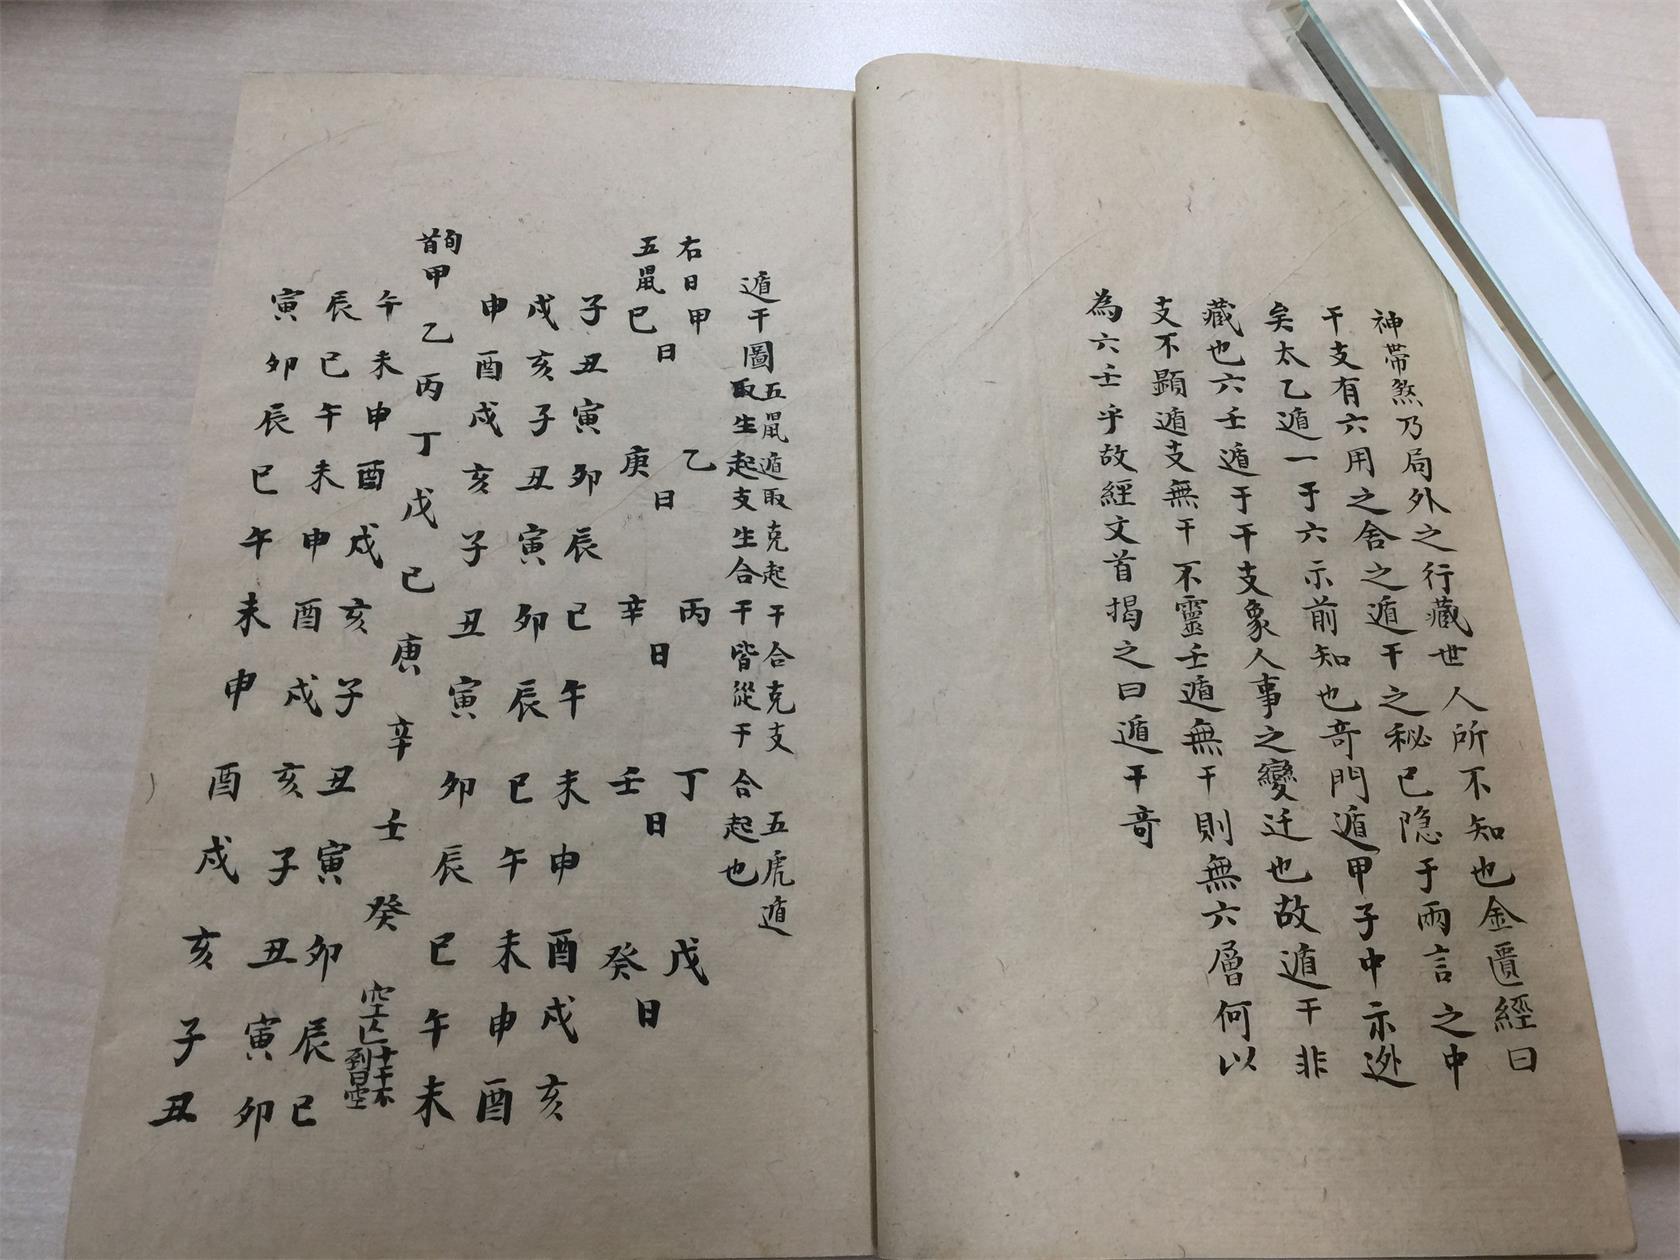 神帶煞乃局外之行藏世人所不知也金匱經曰
干支有六用之舍之遁干之秘已隐于兩言之中
矣太乙遁一于六示前知也竒門遁甲子中示迯
藏也六壬遁于干支象人事之變迁也故遁干非
支不顯遁支無干不靈壬遁無干則無六層何以
為六壬乎故經文首揭之曰遁干竒
遁干圖
五鼠遁取克起干合克支五虎遁
取生起支生合干皆從干合起也
右日甲乙丙丁戊
日日日日日
五鼠巳庚辛壬癸
子丑寅卯辰巳午未申酉戌亥
戌亥子丑寅卯辰巳午未申酉
申酉戌亥子丑寅卯辰巳午未
旬首甲乙丙丁戊己庚辛壬癸空亡十干不到曰空
午未申酉戌亥子丑寅卯辰巳
辰巳午未申酉戌亥子丑寅卯
寅卯辰巳午未申酉戌亥子丑